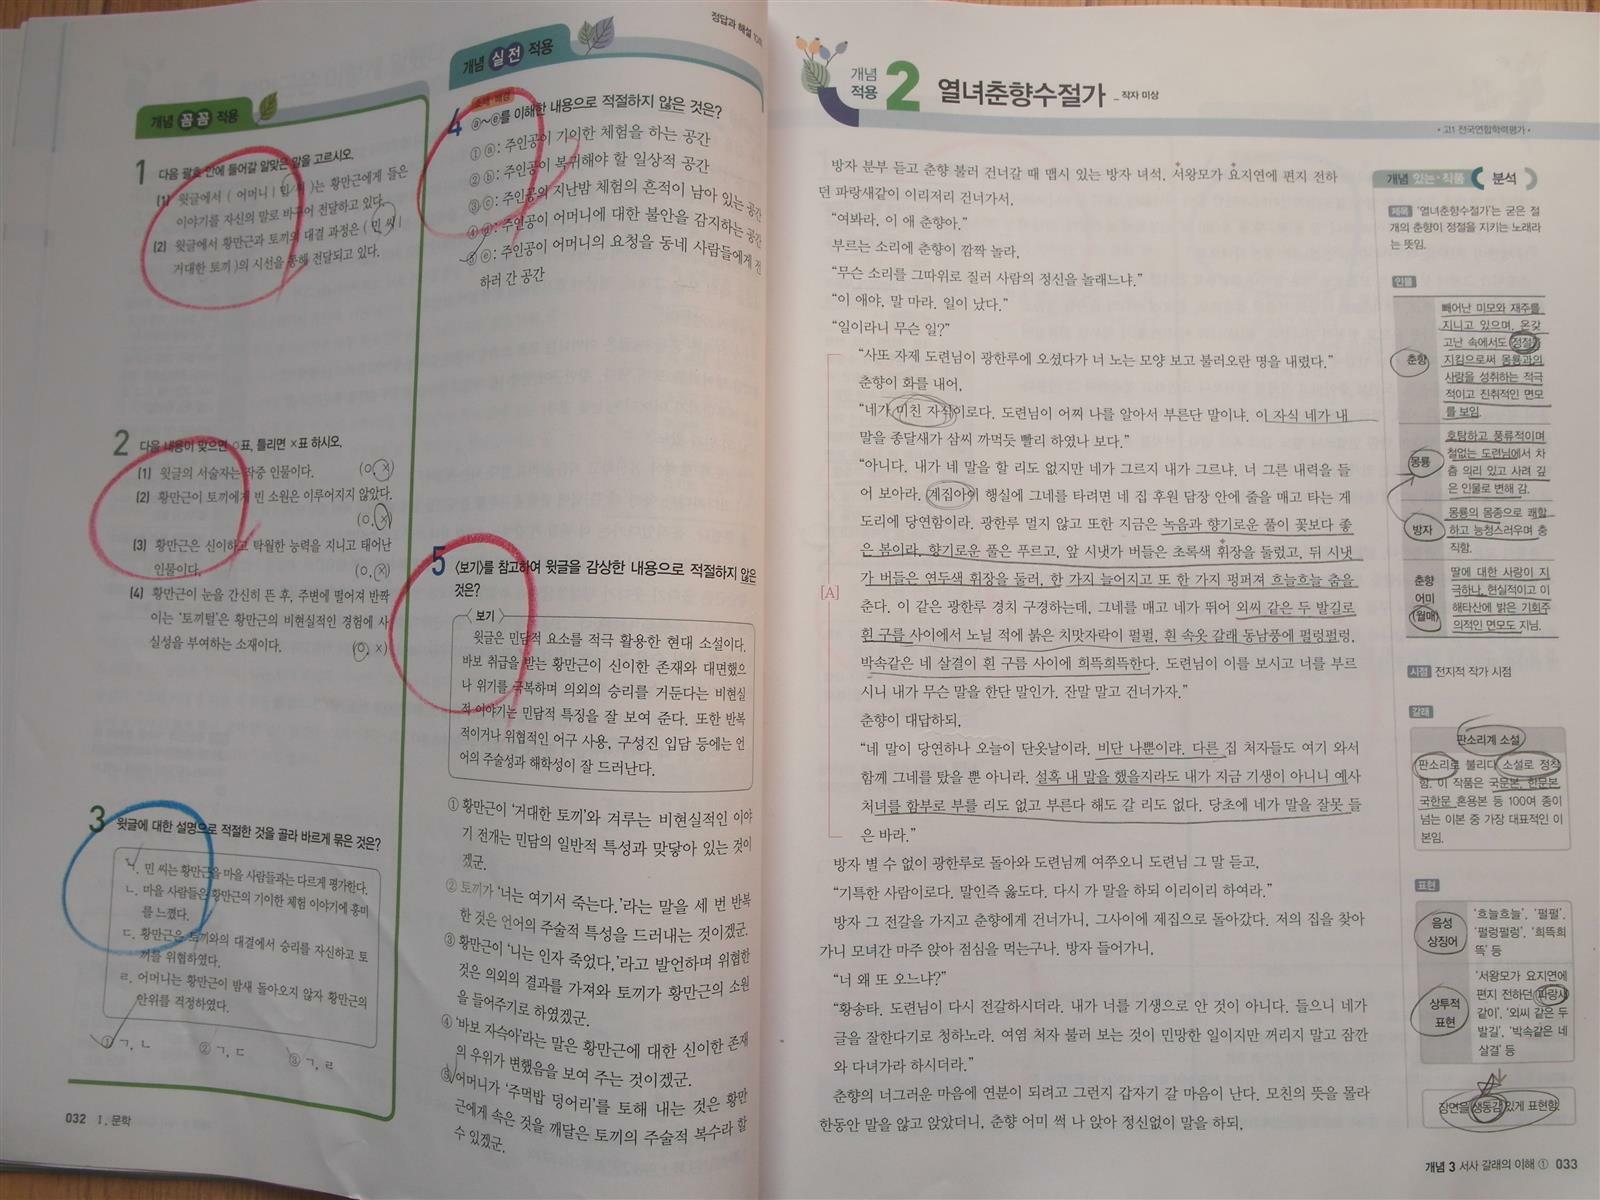 개념 꼼꼼 적용
1 다음 괄호 안에 들어갈 알맞은 말을 고르시오.
(1) 윗글에서 ( 어머니 | 민 씨 )는 황만근에게 들은
이야기를 자신의 말로 바꾸어 전달하고 있다.
(2) 윗글에서 황만근과 토끼의 대결 과정은 ( 민 씨 |
거대한 토끼 )의 시선을 통해 전달되고 있다.
2 다음 내용이 맞으면 ○표, 틀리면 ×표 하시오.
(1) 윗글의 서술자는 작중 인물이다. (○, ×)
(2) 황만근이 토끼에게 빈 소원은 이루어지지 않았다.
(○, ×)
(3) 황만근은 신이하고 탁월한 능력을 지니고 태어난
인물이다. (○, ×)
(4) 황만근이 눈을 간신히 뜬 후, 주변에 떨어져 반짝
이는 '토끼털'은 황만근의 비현실적인 경험에 사
실성을 부여하는 소재이다. (○, ×)
3 윗글에 대한 설명으로 적절한 것을 골라 바르게 묶은 것은?
ㄱ. 민 씨는 황만근을 마을 사람들과는 다르게 평가한다.
ㄴ. 마을 사람들은 황만근의 기이한 체험 이야기에 흥미
를 느꼈다.
ㄷ. 황만근은 토끼와의 대결에서 승리를 자신하고 토
끼를 위협하였다.
ㄹ. 어머니는 황만근이 밤새 돌아오지 않자 황만근의
안위를 걱정하였다.
① ㄱ, ㄴ ② ㄱ, ㄷ ③ ㄱ, ㄹ
032 Ⅰ. 문학
정답과 해설
개념 실전 적용
4 ⓐ~ⓔ를 이해한 내용으로 적절하지 않은 것은?
① ⓐ: 주인공이 기이한 체험을 하는 공간
② ⓑ: 주인공이 복귀해야 할 일상적 공간
③ ⓒ: 주인공의 지난밤 체험의 흔적이 남아 있는 공간
④ ⓓ: 주인공이 어머니에 대한 불안을 감지하는 공간
⑤ ⓔ: 주인공이 어머니의 요청을 동네 사람들에게 전
하러 간 공간
5 〈보기〉를 참고하여 윗글을 감상한 내용으로 적절하지 않은
것은?
〈보기〉
윗글은 민담적 요소를 적극 활용한 현대 소설이다.
바보 취급을 받는 황만근이 신이한 존재와 대면했으
나 위기를 극복하며 의외의 승리를 거둔다는 비현실
적 이야기는 민담적 특징을 잘 보여 준다. 또한 반복
적이거나 위협적인 어구 사용, 구성진 입담 등에는 언
어의 주술성과 해학성이 잘 드러난다.
① 황만근이 '거대한 토끼'와 겨루는 비현실적인 이야
기 전개는 민담의 일반적 특성과 맞닿아 있는 것이
겠군.
② 토끼가 '너는 여기서 죽는다.'라는 말을 세 번 반복
한 것은 언어의 주술적 특성을 드러내는 것이겠군.
③ 황만근이 '니는 인자 죽었다,'라고 발언하며 위협한
것은 의외의 결과를 가져와 토끼가 황만근의 소원
을 들어주기로 하였겠군.
④ '바보 자슥아'라는 말은 황만근에 대한 신이한 존재
의 우위가 변했음을 보여 주는 것이겠군.
⑤ 어머니가 '주먹밥 덩어리'를 토해 내는 것은 황만
근에게 속은 것을 깨달은 토끼의 주술적 복수라 할
수 있겠군.
개념 적용 2 열녀춘향수절가 _ 작자 미상
• 고1 전국연합학력평가 •
방자 분부 듣고 춘향 불러 건너갈 때 맵시 있는 방자 녀석, 서왕모가 요지연에 편지 전하
던 파랑새같이 이리저리 건너가서,
"여봐라, 이 애 춘향아."
부르는 소리에 춘향이 깜짝 놀라,
"무슨 소리를 그따위로 질러 사람의 정신을 놀래느냐."
"이 애야, 말 마라. 일이 났다."
"일이라니 무슨 일?"
"사또 자제 도련님이 광한루에 오셨다가 너 노는 모양 보고 불러오란 명을 내렸다."
춘향이 화를 내어,
"네가 미친 자식이로다. 도련님이 어찌 나를 알아서 부른단 말이냐. 이 자식 네가 내
말을 종달새가 삼씨 까먹듯 빨리 하였나 보다."
"아니다. 내가 네 말을 할 리도 없지만 네가 그르지 내가 그르냐. 너 그른 내력을 들
어 보아라. 계집아이 행실에 그네를 타려면 네 집 후원 담장 안에 줄을 매고 타는 게
도리에 당연함이라. 광한루 멀지 않고 또한 지금은 녹음과 향기로운 풀이 꽃보다 좋
은 봄이라. 향기로운 풀은 푸르고, 앞 시냇가 버들은 초록색 휘장을 둘렀고, 뒤 시냇
가 버들은 연두색 휘장을 둘러, 한 가지 늘어지고 또 한 가지 펑퍼져 흐늘흐늘 춤을
[A] 춘다. 이 같은 광한루 경치 구경하는데, 그네를 매고 네가 뛰어 외씨 같은 두 발길로
흰 구름 사이에서 노닐 적에 붉은 치맛자락이 펄펄, 흰 속옷 갈래 동남풍에 펄렁펄렁,
박속같은 네 살결이 흰 구름 사이에 희뜩희뜩한다. 도련님이 이를 보시고 너를 부르
시니 내가 무슨 말을 한단 말인가. 잔말 말고 건너가자."
춘향이 대답하되,
"네 말이 당연하나 오늘이 단옷날이라. 비단 나뿐이랴. 다른 집 처자들도 여기 와서
함께 그네를 탔을 뿐 아니라. 설혹 내 말을 했을지라도 내가 지금 기생이 아니니 예사
처녀를 함부로 부를 리도 없고 부른다 해도 갈 리도 없다. 당초에 네가 말을 잘못 들
은 바라."
방자 별 수 없이 광한루로 돌아와 도련님께 여쭈오니 도련님 그 말 듣고,
"기특한 사람이로다. 말인즉 옳도다. 다시 가 말을 하되 이리이리 하여라."
방자 그 전갈을 가지고 춘향에게 건너가니, 그사이에 제집으로 돌아갔다. 저의 집을 찾아
가니 모녀간 마주 앉아 점심을 먹는구나. 방자 들어가니,
"너 왜 또 오느냐?"
"황송타. 도련님이 다시 전갈하시더라. 내가 너를 기생으로 안 것이 아니다. 들으니 네가
글을 잘한다기로 청하노라. 여염 처자 불러 보는 것이 민망한 일이지만 꺼리지 말고 잠깐
와 다녀가라 하시더라."
춘향의 너그러운 마음에 연분이 되려고 그런지 갑자기 갈 마음이 난다. 모친의 뜻을 몰라
한동안 말을 않고 앉았더니, 춘향 어미 썩 나 앉아 정신없이 말을 하되,
개념 있는 작품 분석
제목 '열녀춘향수절가'는 굳은 절
개의 춘향이 정절을 지키는 노래라
는 뜻임.
인물
춘향 빼어난 미모와 재주를
지니고 있으며, 온갖
고난 속에서도 정절을
지킴으로써 몽룡과의
사랑을 성취하는 적극
적이고 진취적인 면모
를 보임.
몽룡 호탕하고 풍류적이며
철없는 도련님에서 차
츰 의리 있고 사려 깊
은 인물로 변해 감.
방자 몽룡의 몸종으로 쾌활
하고 능청스러우며 충
직함.
춘향 어미 (월매) 딸에 대한 사랑이 지
극하나, 현실적이고 이
해타산에 밝은 기회주
의적인 면모도 지님.
시점 전지적 작가 시점
갈래
판소리계 소설
판소리로 불리다 소설로 정착
함. 이 작품은 국문본, 한문본,
국한문 혼용본 등 100여 종이
넘는 이본 중 가장 대표적인 이
본임.
표현
음성 상징어 '흐늘흐늘', '펄펄',
'펄렁펄렁', '희뜩희
뜩' 등
상투적 표현 '서왕모가 요지연에
편지 전하던 파랑새
같이', '외씨 같은 두
발길', '박속같은 네
살결' 등
장면을 생동감 있게 표현함.
개념 3 서사 갈래의 이해 ① 033